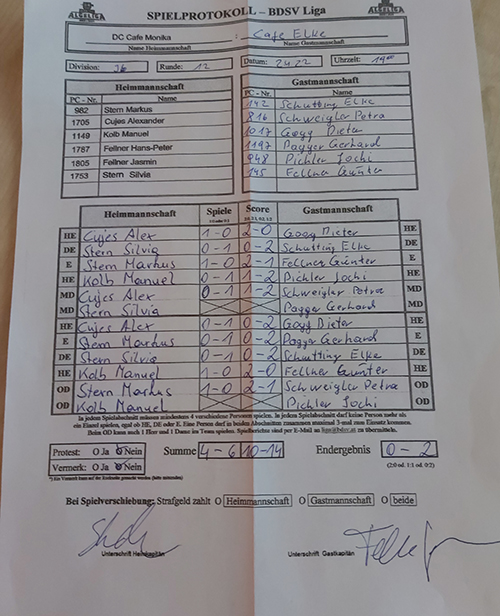 SPIELPROTOKOLL – BDSV Liga
DC Cafe Monika : Cafe Elke
Name Heimmannschaft Name Gastmannschaft
Division: 3b Runde: 12 Datum: 2422 Uhrzeit: 19 00
Heimmannschaft Gastmannschaft
PC - Nr. Name PC - Nr. Name
982 Stern Markus 142 Schutting Elke
1705 Cujes Alexander 816 Schweigler Petra
1149 Kolb Manuel 1017 Gogg Dieter
1787 Fellner Hans-Peter 1197 Pagger Gerhard
1805 Fellner Jasmin 948 Pichler Jochi
1753 Stern Silvia 145 Fellner Günter
Heimmannschaft Spiele Score Gastmannschaft
HE Cujes Alex 1-0 2-0 Gogg Dieter HE
DE Stern Silvia 0-1 0-2 Schutting Elke DE
E Stern Markus 1-0 2-1 Fellner Günter E
HE Kolb Manuel 0-1 1-2 Pichler Jochi HE
MD Cujes Alex 0-1 1-2 Schweigler Petra MD
MD Stern Silvia Pagger Gerhard MD
HE Cujes Alex 0-1 0-2 Gogg Dieter HE
E Stern Markus 0-1 0-2 Pagger Gerhard E
DE Stern Silvia 0-1 0-2 Schutting Elke DE
HE Kolb Manuel 1-0 2-0 Fellner Günter HE
OD Stern Markus 1-0 2-1 Schweigler Petra OD
OD Kolb Manuel Pichler Jochi OD
In jedem Spielabschnitt müssen mindestens 4 verschiedene Personen spielen. In jedem Spielabschnitt darf keine Person mehr als
ein Einzel spielen, egal ob HE, DE oder E. Eine Person darf in beiden Abschnitten zusammen maximal 3-mal zum Einsatz kommen.
Beim OD kann auch 1 Herr und 1 Dame im Team spielen. Spielberichte sind per E-Mail an liga@bdsv.at zu übermitteln.
Protest: O Ja O Nein Summe 4-6 10-14 Endergebnis 0-2
Vermerk: O Ja O Nein (2:0 od. 1:1 od. 0:2)
Bei Spielverschiebung: Strafgeld zahlt O Heimmannschaft O Gastmannschaft O beide
Unterschrift Heimkapitän Unterschrift Gastkapitän